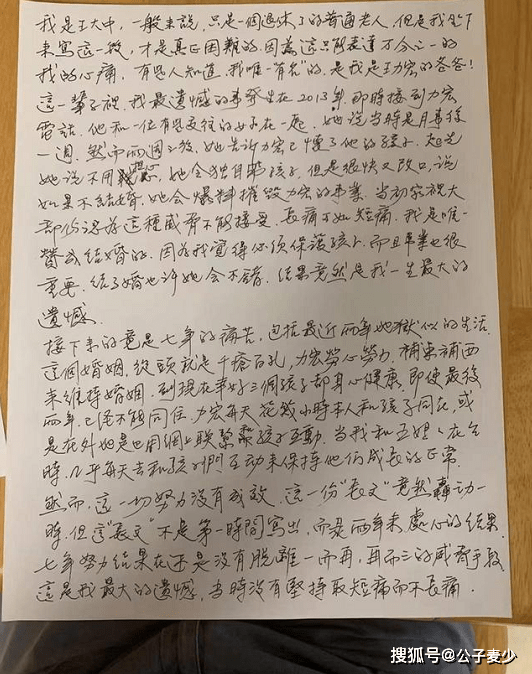 我是王大中，一般來説，只是一個退休了的普通老人，但是我坐下
來寫這一放，才是真正困難的，因為這只能表達万分之一的
我的心痛，有些人知道，我唯一"有名"的，是我是王力宏的爸爸！
這一輩子裡，我最遺憾的事發生在2013年，即時接到力宏
電話，他和一位有些交往的女子在一起，她說當時是月事後
一週，然而兩週之後，她告訴力宏已懷了他的孩子，起先
她說不用擔心，她會獨自帶孩子，但是很快又改口，說
如果不結婚，她會爆料摧毀力宏的事業，當初家裡大
部份認為這種威脅不能接受，長痛不如短痛，我是唯一
贊成結婚的，因為我覺得必須保護孩子，而且事業也很
重要，結了婚也许她會不錯，結果竟然是我一生最大的
遺憾．
接下來的竟是七年的痛苦，包括最近兩年地獄似的生活．
這個婚姻，從頭就是千瘡百孔，力宏勞心勞力，補東補西
來維持婚姻，到現在幸好三個孩子都身心健康，即使最後
兩年，已经不能同住，力宏每天花幾小時本人和孩子同在，或
是在外地也用網上联繫幫孩子互動，當我和王媽媽在台
時，几乎每天去和孩子們互动來保持他们成長的正常．
然而，這一切努力沒有成效，這一份"長文"竟然轟动一
時，但这"長文"不是第一時間寫出，而是兩年來處心的結果
七年努力結果在还是沒有脫離一而再，再而三的威脅手段
這是我最大的遺憾，當時沒有堅持取短痛而不長痛．
搜狐号@公子麦少